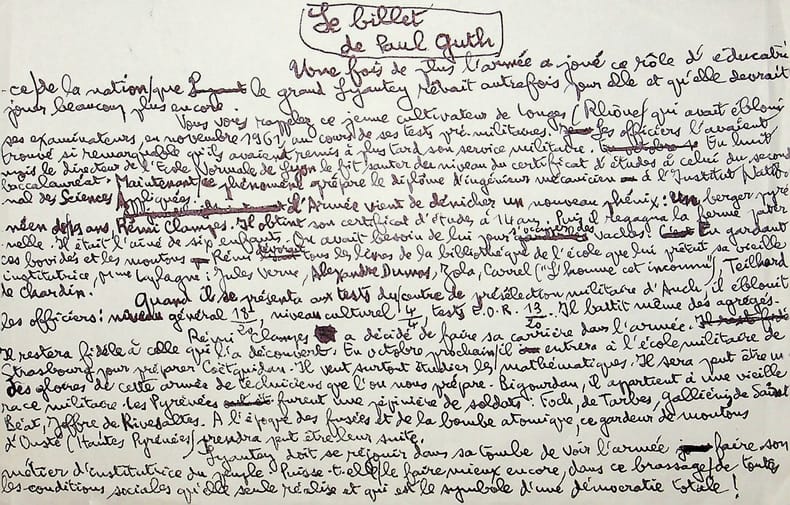 Le billet
de Paul Guth
Une fois de plus l'armée a joué ce rôle d'éducatri
-ce de la nation que le grand Lyautey rêvait autrefois pour elle et qu'elle devrait
jouer beaucoup plus encore.
Vous vous rappelez ce jeune cultivateur de Longes (Rhône) qui avait ébloui
ses examinateurs en novembre 1961, au cours de ses tests pré-militaires. Les officiers l'avaient
trouvé si remarquable qu'ils avaient remis à plus tard son service militaire. En huit
mois le directeur de l'Ecole Normale de Lyon le fit sauter du niveau du certificat d'études à celui du second
baccalauréat. Maintenant ce phénomène prépare le diplôme d'ingénieur mécanicien à l'Institut Natio
nal des Sciences Appliquées.
L'Armée vient de dénicher un nouveau phénix : un berger pyré
néen de ans, Rémi Clampes. Il obtint son certificat d'études à 14 ans. Puis il regagna la ferme pater
nelle. Il était l'aîné de six enfants. On avait besoin de lui pour s'occuper des vaches. En gardant
ces bovidés et les moutons Rémi dévorait tous les livres de la bibliothèque de l'école que lui prêtait sa vieille
institutrice, Mme : Jules Verne, Alexandre Dumas, Zola, Carrel ("L'homme cet inconnu"), Teilhard
de Chardin.
Quand il se présenta aux tests du centre de présélection militaire d'Auch, il éblouit
les officiers : niveau général 18/20, niveau culturel 4/4, tests E.O.R. 13/20. Il battit même des agrégés.
Rémi Clampes a décidé de faire sa carrière dans l'armée.
Il restera fidèle à celle qui l'a découvert. En octobre prochain, il entrera à l'école militaire de
Strasbourg pour préparer Coëtquidan. Il veut surtout étudier les mathématiques. Il sera peut être un
des gloires de cette armée de techniciens que l'on nous prépare. Bigourdan, il appartient à une vieille
race militaire. Les Pyrénées furent une pépinière de soldats : Foch, de Tarbes, galliéni, de Saint
Béat, Joffre de Rivesaltes. A l'époque des fusées et de la bombe atomique, ce gardeur de moutons
d'Ousté (Hautes Pyrénées) prendra peut être leur suite.
Lyautey doit se réjouir dans sa tombe de voir l'armée faire son
métier d'institutrice du peuple. Puisse-t-elle le faire mieux encore, dans ce brassage de toutes
les conditions sociales qu'elle seule réalise et qui est le symbole d'une démocratie totale !